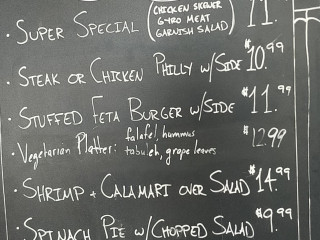 • SUPER SPECIAL (CHICKEN SKEWER 11.
GYRO MEAT
GARNISH SALAD)
• STEAK OR CHICKEN PHILLY W/SIDE $10.99
• STUFFED FETA BURGER W/SIDE $11.99
• Vegetarian Platter: falafel, hummus $12.99
tabuleh, grape leaves
• SHRIMP + CALAMARI OVER SALAD $14.99
• SPINACH PIE W/CHOPPED SALAD $9.99